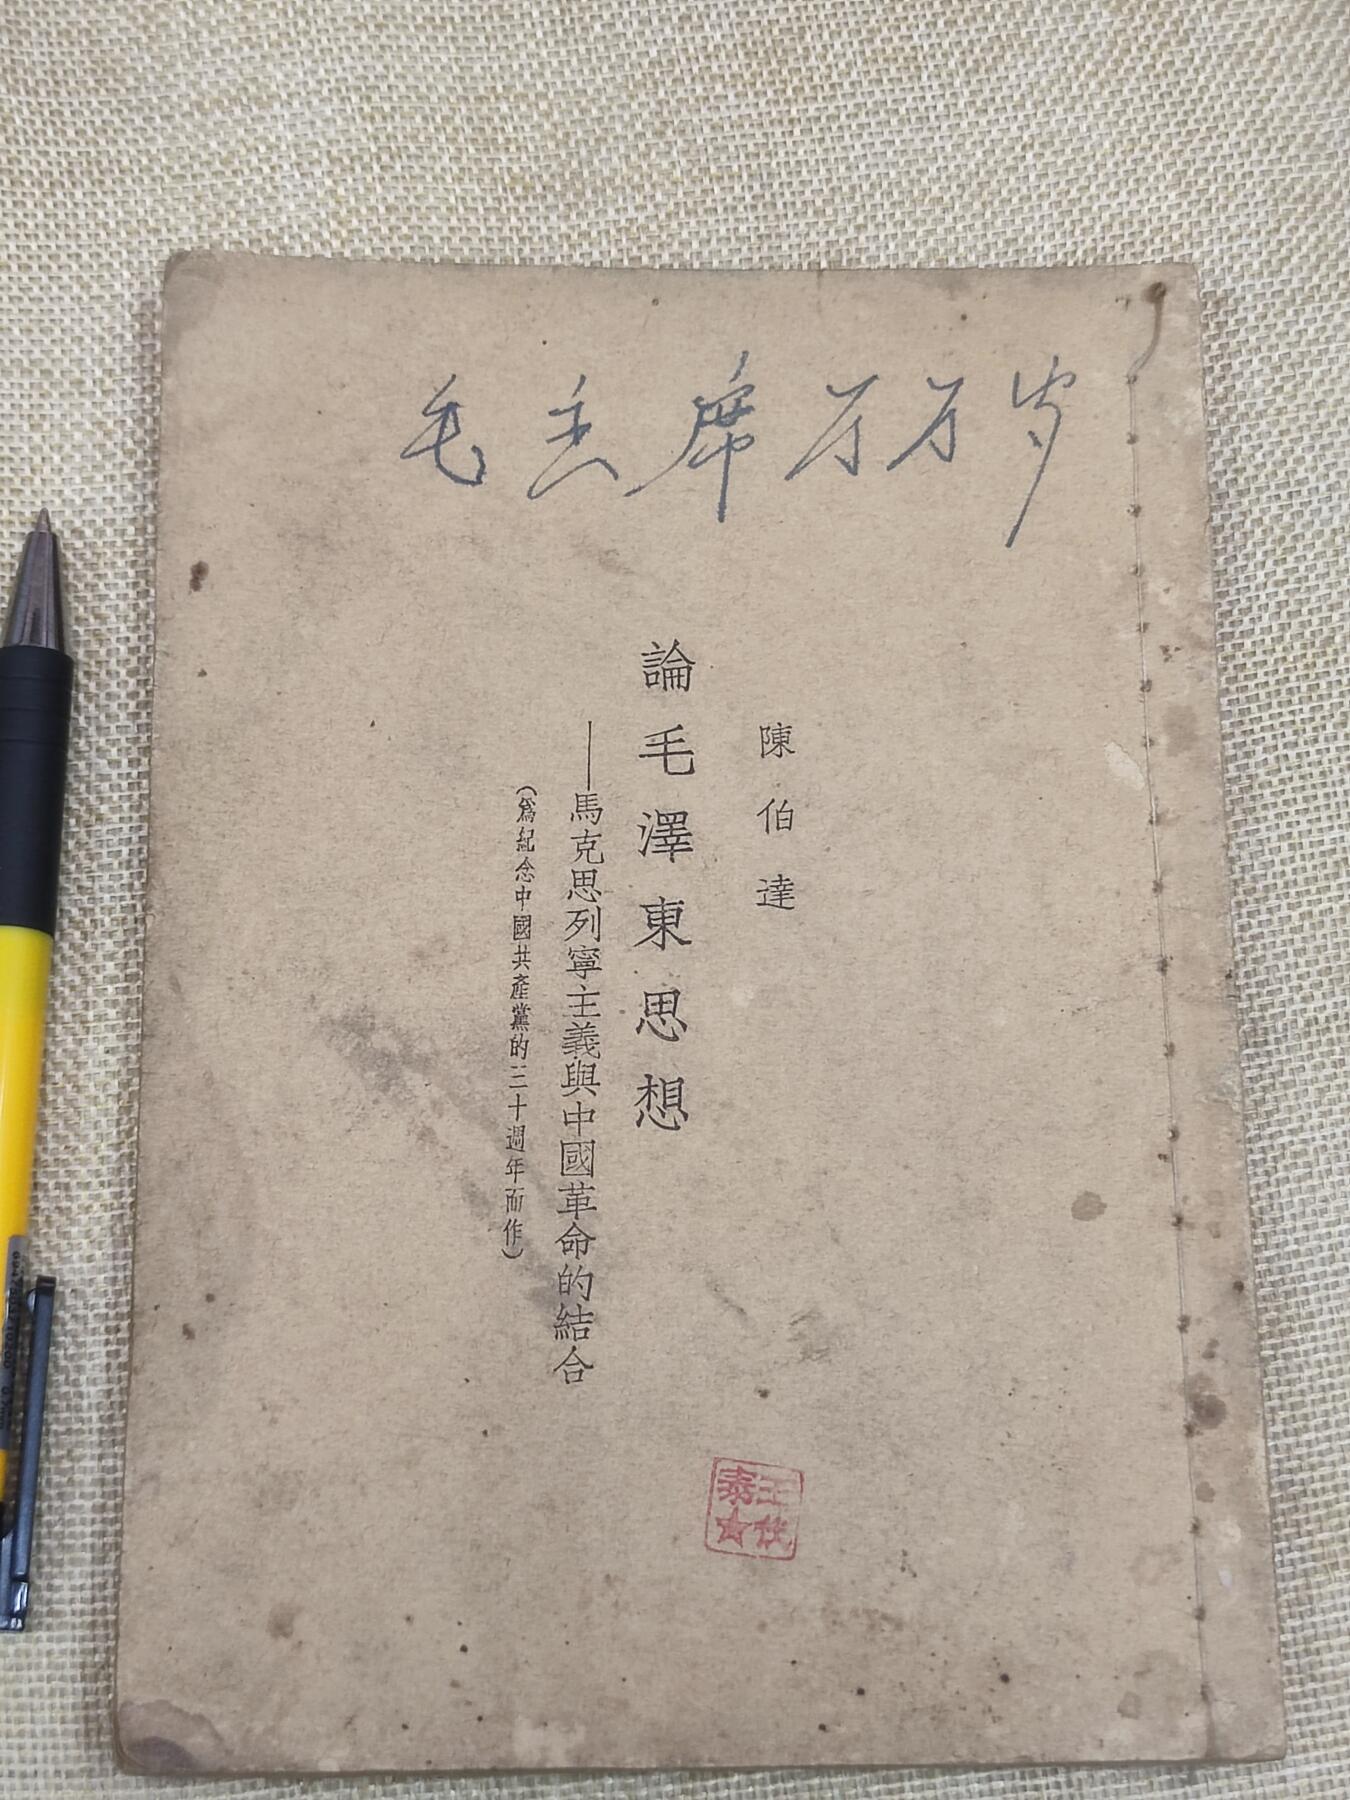 毛主席万万岁
陳伯達
論毛澤東思想
——馬克思列寧主義與中國革命的結合
（爲紀念中國共產黨的三十週年而作）
王
泰★